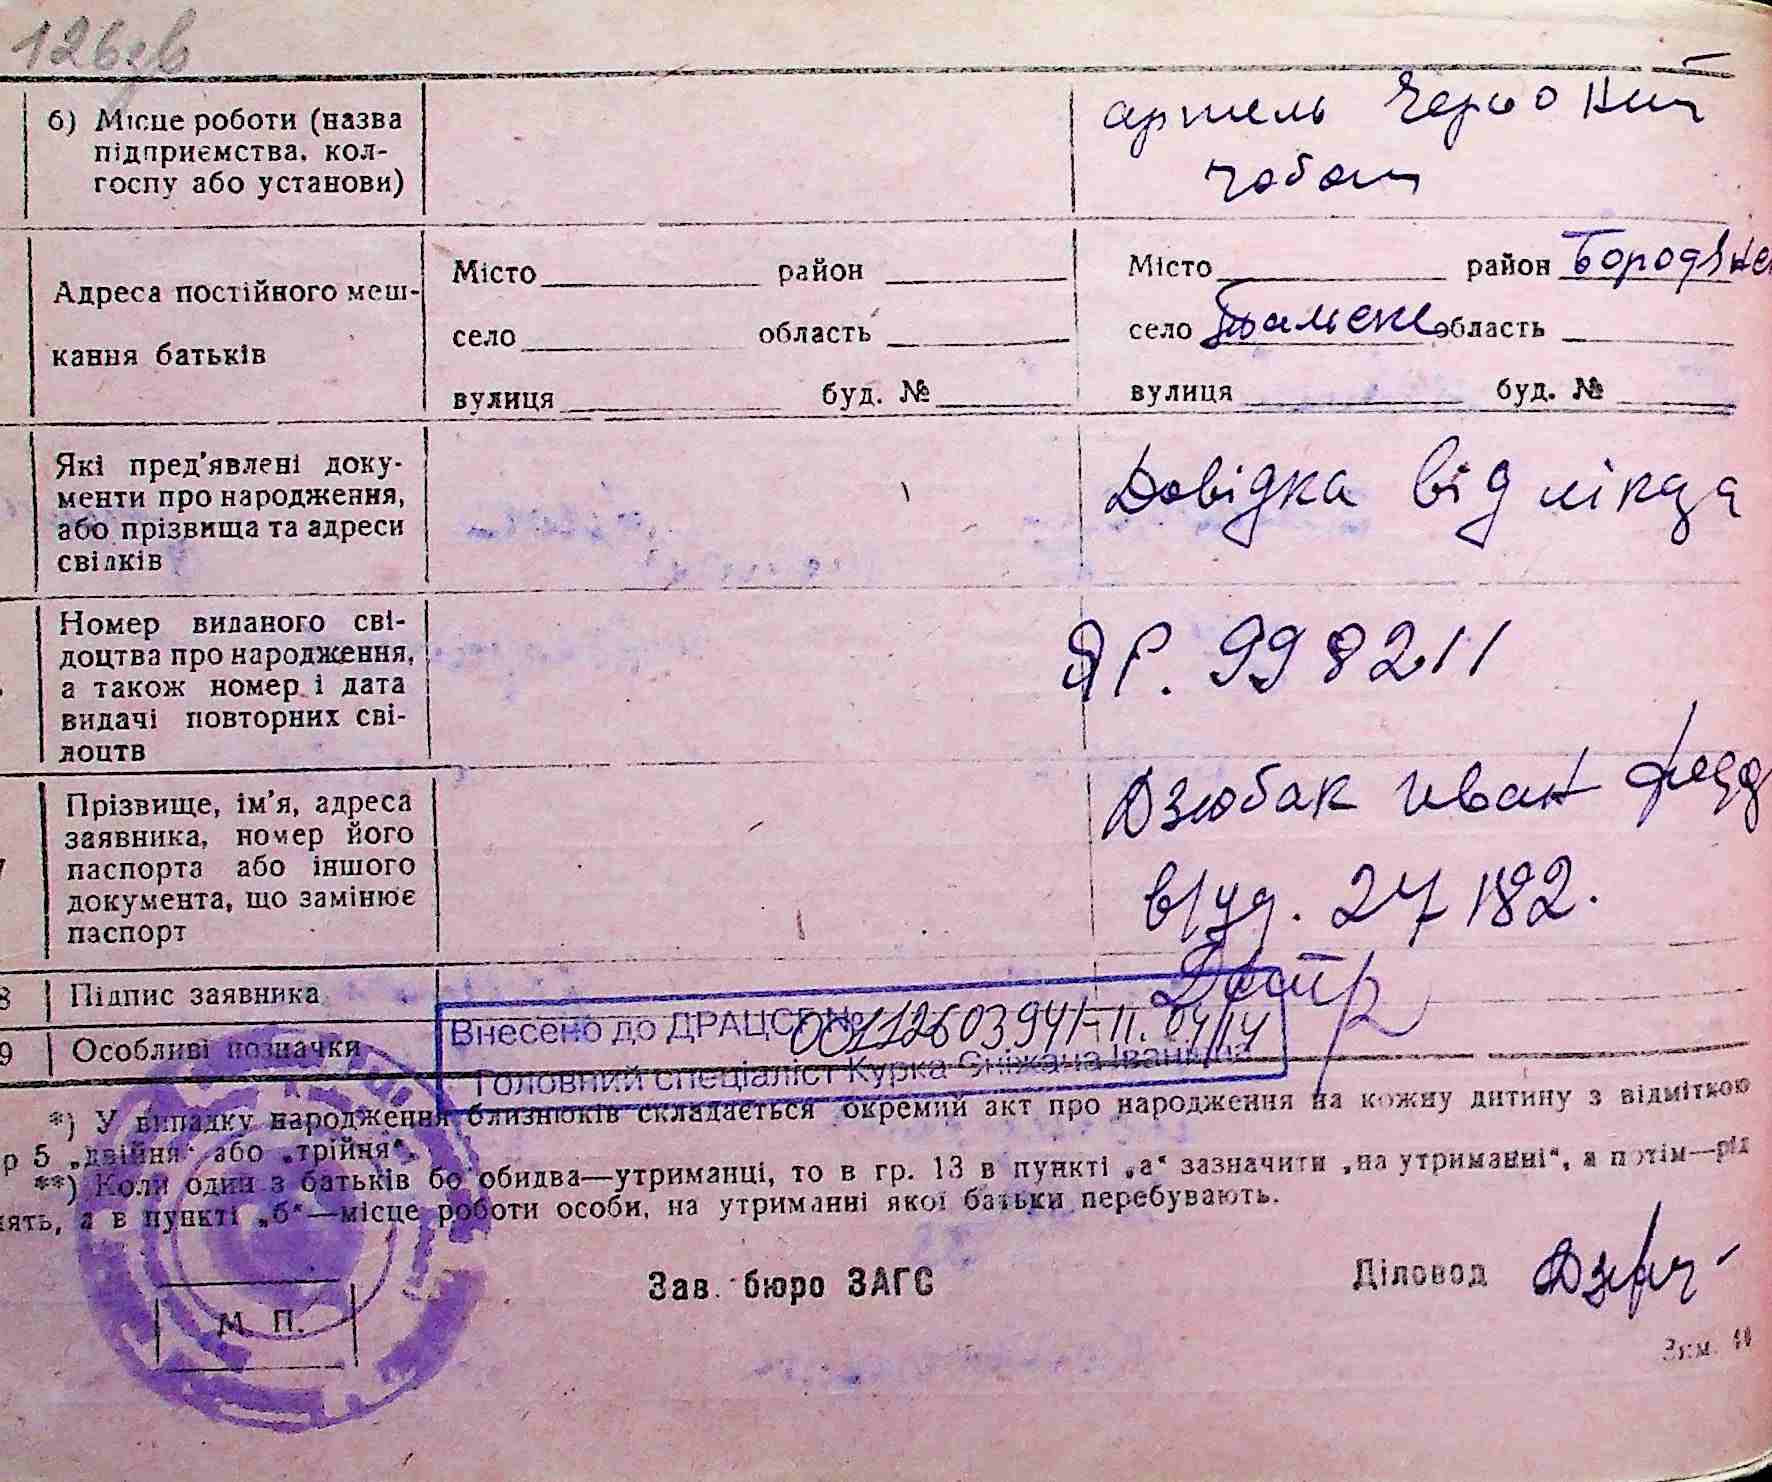 126зв
6) Місце роботи (назва
підприємства, кол-
госпу або установи)
артель Червоний
чобот
Адреса постійного меш-
кання батьків
Місто район
село область
вулиця буд. №
Місто район Бородянс
село область
вулиця буд. №
Які пред'явлені доку-
менти про народження,
або прізвища та адреси
свідків
Довідка від лікаря
Номер виданого сві-
доцтва про народження,
а також номер і дата
видачі повторних сві-
доцтв
ЯР. 998211
Прізвище, ім'я, адреса
заявника, номер його
паспорта або іншого
документа, що замінює
паспорт
Дзюбак Иван
в/уд. 27182.
8 Підпис заявника
9 Особливі позначки
Внесено до ДРАЦСГ №
00112603941-11.04/14
Головний спеціаліст Курка Сніжана Іванівна
*) У випадку народження близнюків складається окремий акт про народження на кожну дитину з відміткою
р 5 „двійня" або „трійня".
**) Коли один з батьків бо обидва—утриманці, то в гр. 13 в пункті „а" зазначити „на утриманні", а потім—рід
нять, а в пункті „б"—місце роботи особи, на утриманні якої батьки перебувають.
Зав. бюро ЗАГС
Діловод
М. П.